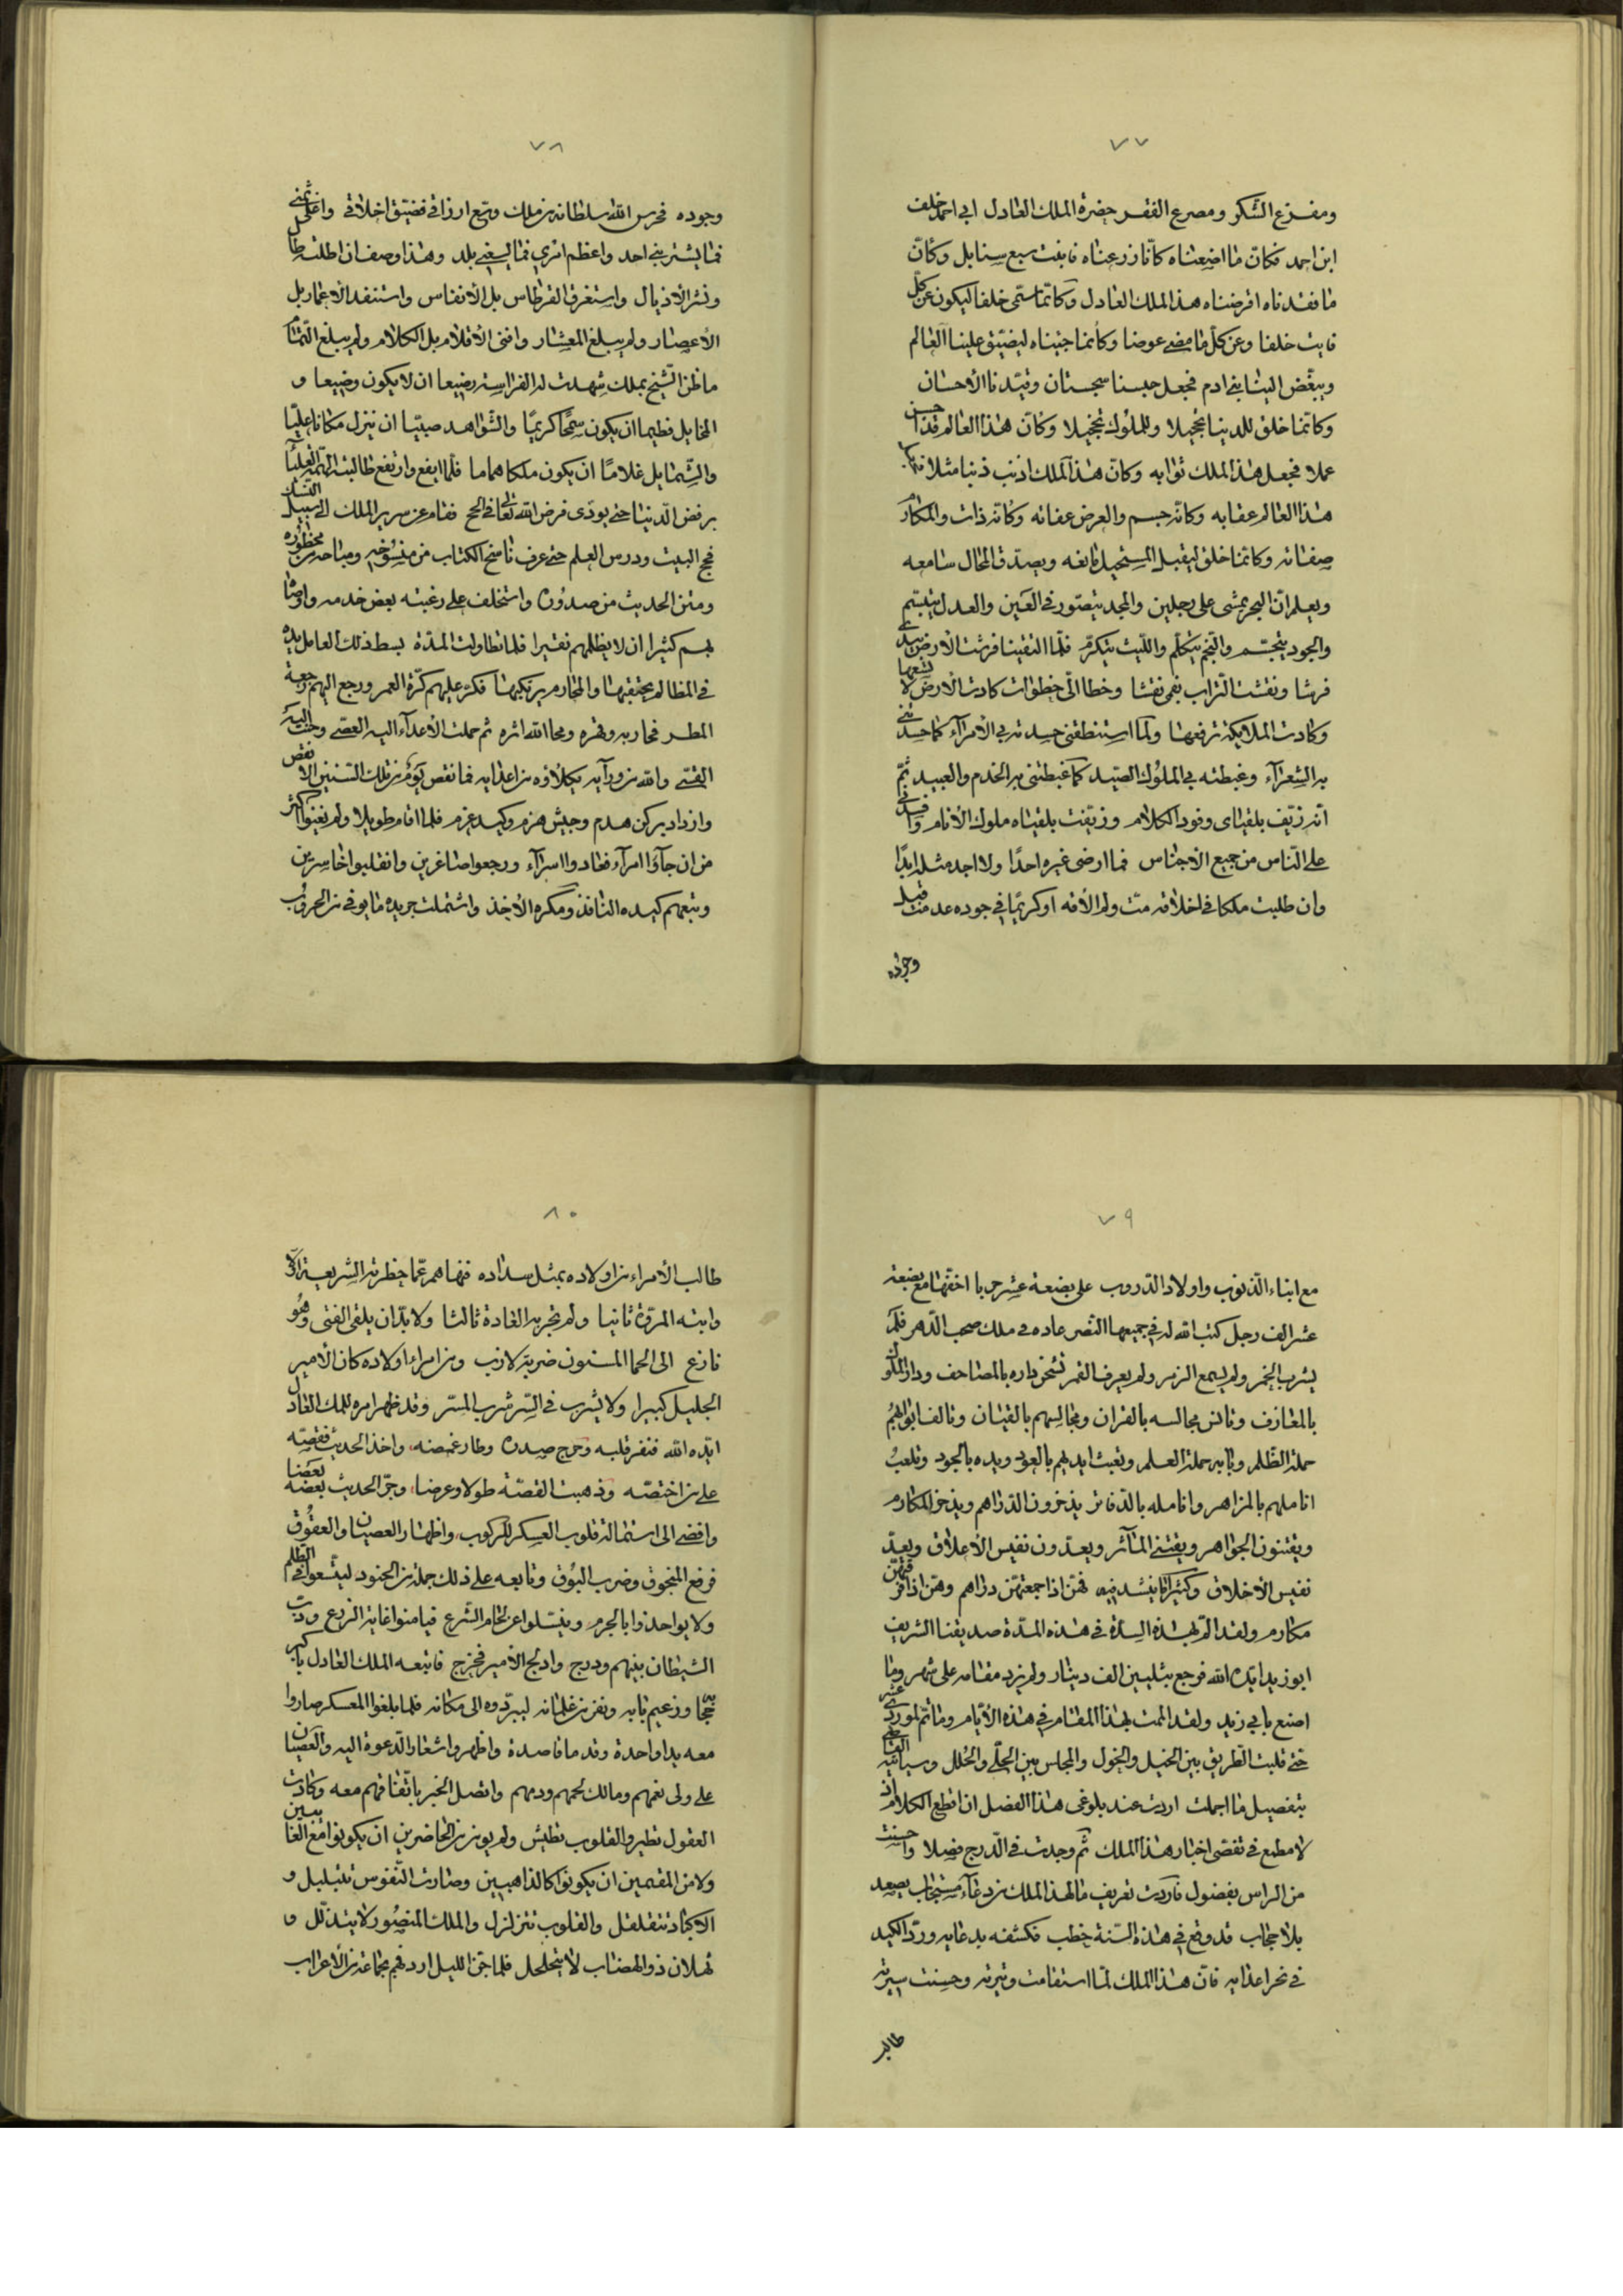 ٧٧
ومفزع الشكر ومصرع الفقر حضرة الملك العادل ابي احمد خلف
ابن احمد فكانّ ما اضعناه كانّا زرعناه فانبت سبع سنابل وكأنّ
ما فقدناه اقرضناه هذا الملك العادل وكانّما سمّى خلفا ليكون عن كلّ
فايت خلفا وعن كلّ ما مضى عوضا وكأنما جئناه ليضيّق علينا العالم
ويبغّض الينا بني ادم فجعل حبسنا سجستان وقيّدنا الأحسان
وكانّما خلق للدينا تجميلا وللملوك تخجيلا وكانّ هذا العالم قد احسن
عملا فجعل هذا الملك ثوابه وكانّ هذا الملك اذنب ذنبا مثلا
هذا العالم عقابه وكانّه جسم والعرض عفاته وكانّه ذات والمكارم
صفاته وكانّما خلق ليقبل المستحيل فابعه ويصدّق المحال سامعه
ويعلم انّ البحر يمشى على رجلين والمجد يتصوّر في العين والعدل يتبسّم
والجود يتجسّم والنجم يتكلّم واللّيث يتكرّم فلمّا التقينا فرشت الأرض بيدي
فرشا ونقشت التّراب بفمي نقشا وخطا اليّ خطوات كادت الأرض لا تسعها
وكادت الملايكة ترفعها ولمّا استنطقني حسدته في الأمرآء كما حسدني
به الشعرآء وغبطته في الملوك الصّيد كما غبطتني به الخدم والعبيد ثمّ
انّه زيّف بلقياي وفود الكلام وزيّفت بلقياه ملوك الأنام وافسدني
على النّاس من جميع الاجناس فما ارضى غيره احدًا ولا اجد مثله ابدًا
وان طلبت ملكا في اخلاقه متّ ولم الأقه او كريمًا في جوده عدمت قبل
وجوده
٧٨
وجوده فحرس الله سلطانه من ملك وسّع ارزاقي فضيّق اخلاقي واغلى ثمني
فما يشتريني احد واعظم امري فما يسعني بلد وهذا وصف ان اطلته طا
ونثر الأذيال واستغرق القرطاس بل الأنفاس واستنفد الأعمار بل
الأعصار ولم يبلغ المعشار وافنى الأقلام بل الكلام ولم يبلغ التّمام
ما ظنّ الشّيخ بملك شهدت له الفراسة رضيعا ان لا يكون وضيعا و
المخايل فطيما ان يكون سمحًا كريمًا والشّواهد صبيّا ان ينزل مكانا عليّا
والشّمايل غلامًا ان يكون ملكا هماما فلمّا ايفع وارتفع طالبته الهمّة العليا
برفض الدّنيا حتى يودّى فرض الله تعالى في الحج فقام عن سرير الملك الى سبيل النّسك
فحج البيت ودرس العلم حتى عرف ناسخ الكتاب من منسوخه ومباحه من محظوره
ومتن الحديث من صدوره واستخلف على رعيته بعض خدمه واوصاه
بهم كثيرا ان لا يظلمهم نقيرا فلمّا تطاولت المدّة بسط ذلك العامل يده
في المظالم يحتقبها والمحارم يرتكبها فكرّ عليهم كرّة العمر ورجع اليهم رجعة
المطر فحاربه وقهره ومحا الله اثره ثم حملت الأعدآء اليه العصّي وحنت اليه
القسّي والله من ورآيه يكلأوه من اعدايه فما نقص يوم من تلك السّنين الا نقص
وازداد بركن هدم وجيش هزم وكيد عزم فلمّا اقام طويلا ولم يغنوا اكثر
من ان جآؤا امرآء فعادوا اسرآء ورجعوا صاغرين وانقلبوا خاسرين
وتبعهم كيده النافذ ومكره الأخذ واشتملت جريده ما يوفى من الحروب
٧٩
مع ابناء الذّنوب واولاد الدّروب على بضعة عشر حربا اخفّها مع بضعة
عشر الف رجل كتب الله له في جميعها النّصر عاده في ملك صحب الدّهر فلم
يشرب الخمر ولم يسمع الزمر ولم يعرف القمر تشحن داره بالمصاحف ودار الملوك
بالمعازف وتانس مجالسه بالقران ومجالسهم بالقيان وتالف ابوابهم
حملة الظّلم وبابه حملة العلم وتعبث ايديهم بالعود ويده بالجود وتلعب
اناملهم بالمزاهر وانامله بالدّفاتر يذخرون الدّراهم ويذخر المكارم
ويقتنون الجواهر ويقتني المآثر ويعدّون نفيس الأعلاق ويعدّ
نفيس الأخلاق وكثيرا ما ينشد فيه فهنّ اذا جمعتهنّ دراهم وهنّ اذا فرّقتهنّ
مكارم ولقد المّ بهذه السدّة في هذه المدّة صديقنا الشريف
ابو زيد ايّده الله فرجع بثلثين الف دينار ولم يزد مقامه على شهر وما
اصنع بابي زيد ولقد الممت بهذا المقام في هذه الأيّام وما تمّ لمورد عشر
حتّى قلبت الطّريق بين الخيل والخول والمجلس بين الحلّى والحلل وسياتيه
بتفصيل ما اجملت اردت عند بلوغى هذا الفصل ان اقطع الكلام اذ
لا مطمع في تقصّى اخبار هذا الملك ثمّ وجدت في الدّرج فضلا واحسنت
من الراس بفضول فاردت تعريف ما لهذا الملك من دعآء مستجاب يصعد
بلا حجاب قد وقع في هذه السّنة خطب فكشفه بدعايه وردّ الكيد
في نحر اعدايه فانّ هذا الملك لمّا استقامت وتيرته وحسنت سيرته
طالب
٨٠
طالب الأمراء من اولاده بمثل سداده فنهاهم عمّا حظرته الشّريعة
وابته المروّة ثانيا ولم تجر به العادة ثالثا ولا بدّ ان يلقى الفتى وهو
فازع الى الحما المسنون ضربة لازب ومن امراء اولاده كان الأمير
الجليل كبيرا ولا يشرب في السّر شرب المسّر وقد ظهر امره للملك العادل
ايّده الله فنفر قلبه وحرج صدره وطار غمضه واخذ الحديث فقصّه
على من اختصّه وذهبت القصّة طولا وعرضا وجرّ الحديث بعضه بعضا
وافضى الى استمالة قلوب العسكر للركوب واظهار العصيان والعقوق
فرفع المنجوق وضرب البوق وتابعه على ذلك جملة من الجنود ليتّسعوا في الظّلم
ولا يواخذوا بالجرم وينسّلوا عن لجام الشّرع فيامنوا غاية الزرع ودبّ
الشيطان بينهم ودرج وادلج الأمير فخرج فاتبعه الملك العادل باكبر
حجّابه وزعيم بابه ونفر من غلمانه ليردّوه الى مكانه فلمّا بلغوا المعسكر صاروا
معه يدا واحدة وقدما قاصدة واظهروا شعار الدّعوة اليه والعصيان
على ولى نعمهم ومالك لحمهم ودمهم واتصل الخبر باتّفاقهم معه وكادت
العقول تطير والقلوب تطيش ولم يومن من الحاضرين ان يكونوا مع الغايبين
ولا من المقيمين ان يكونوا كالذاهبين وصارت النّفوس تتبلبل و
الأكباد تتقلقل والقلوب تتزلزل والملك المنصور لا يتذلّل و
ثهلان ذو الهضاب لا يتحلحل فلمّا جنّ الليل اردفهم بجماعة من الأعراب